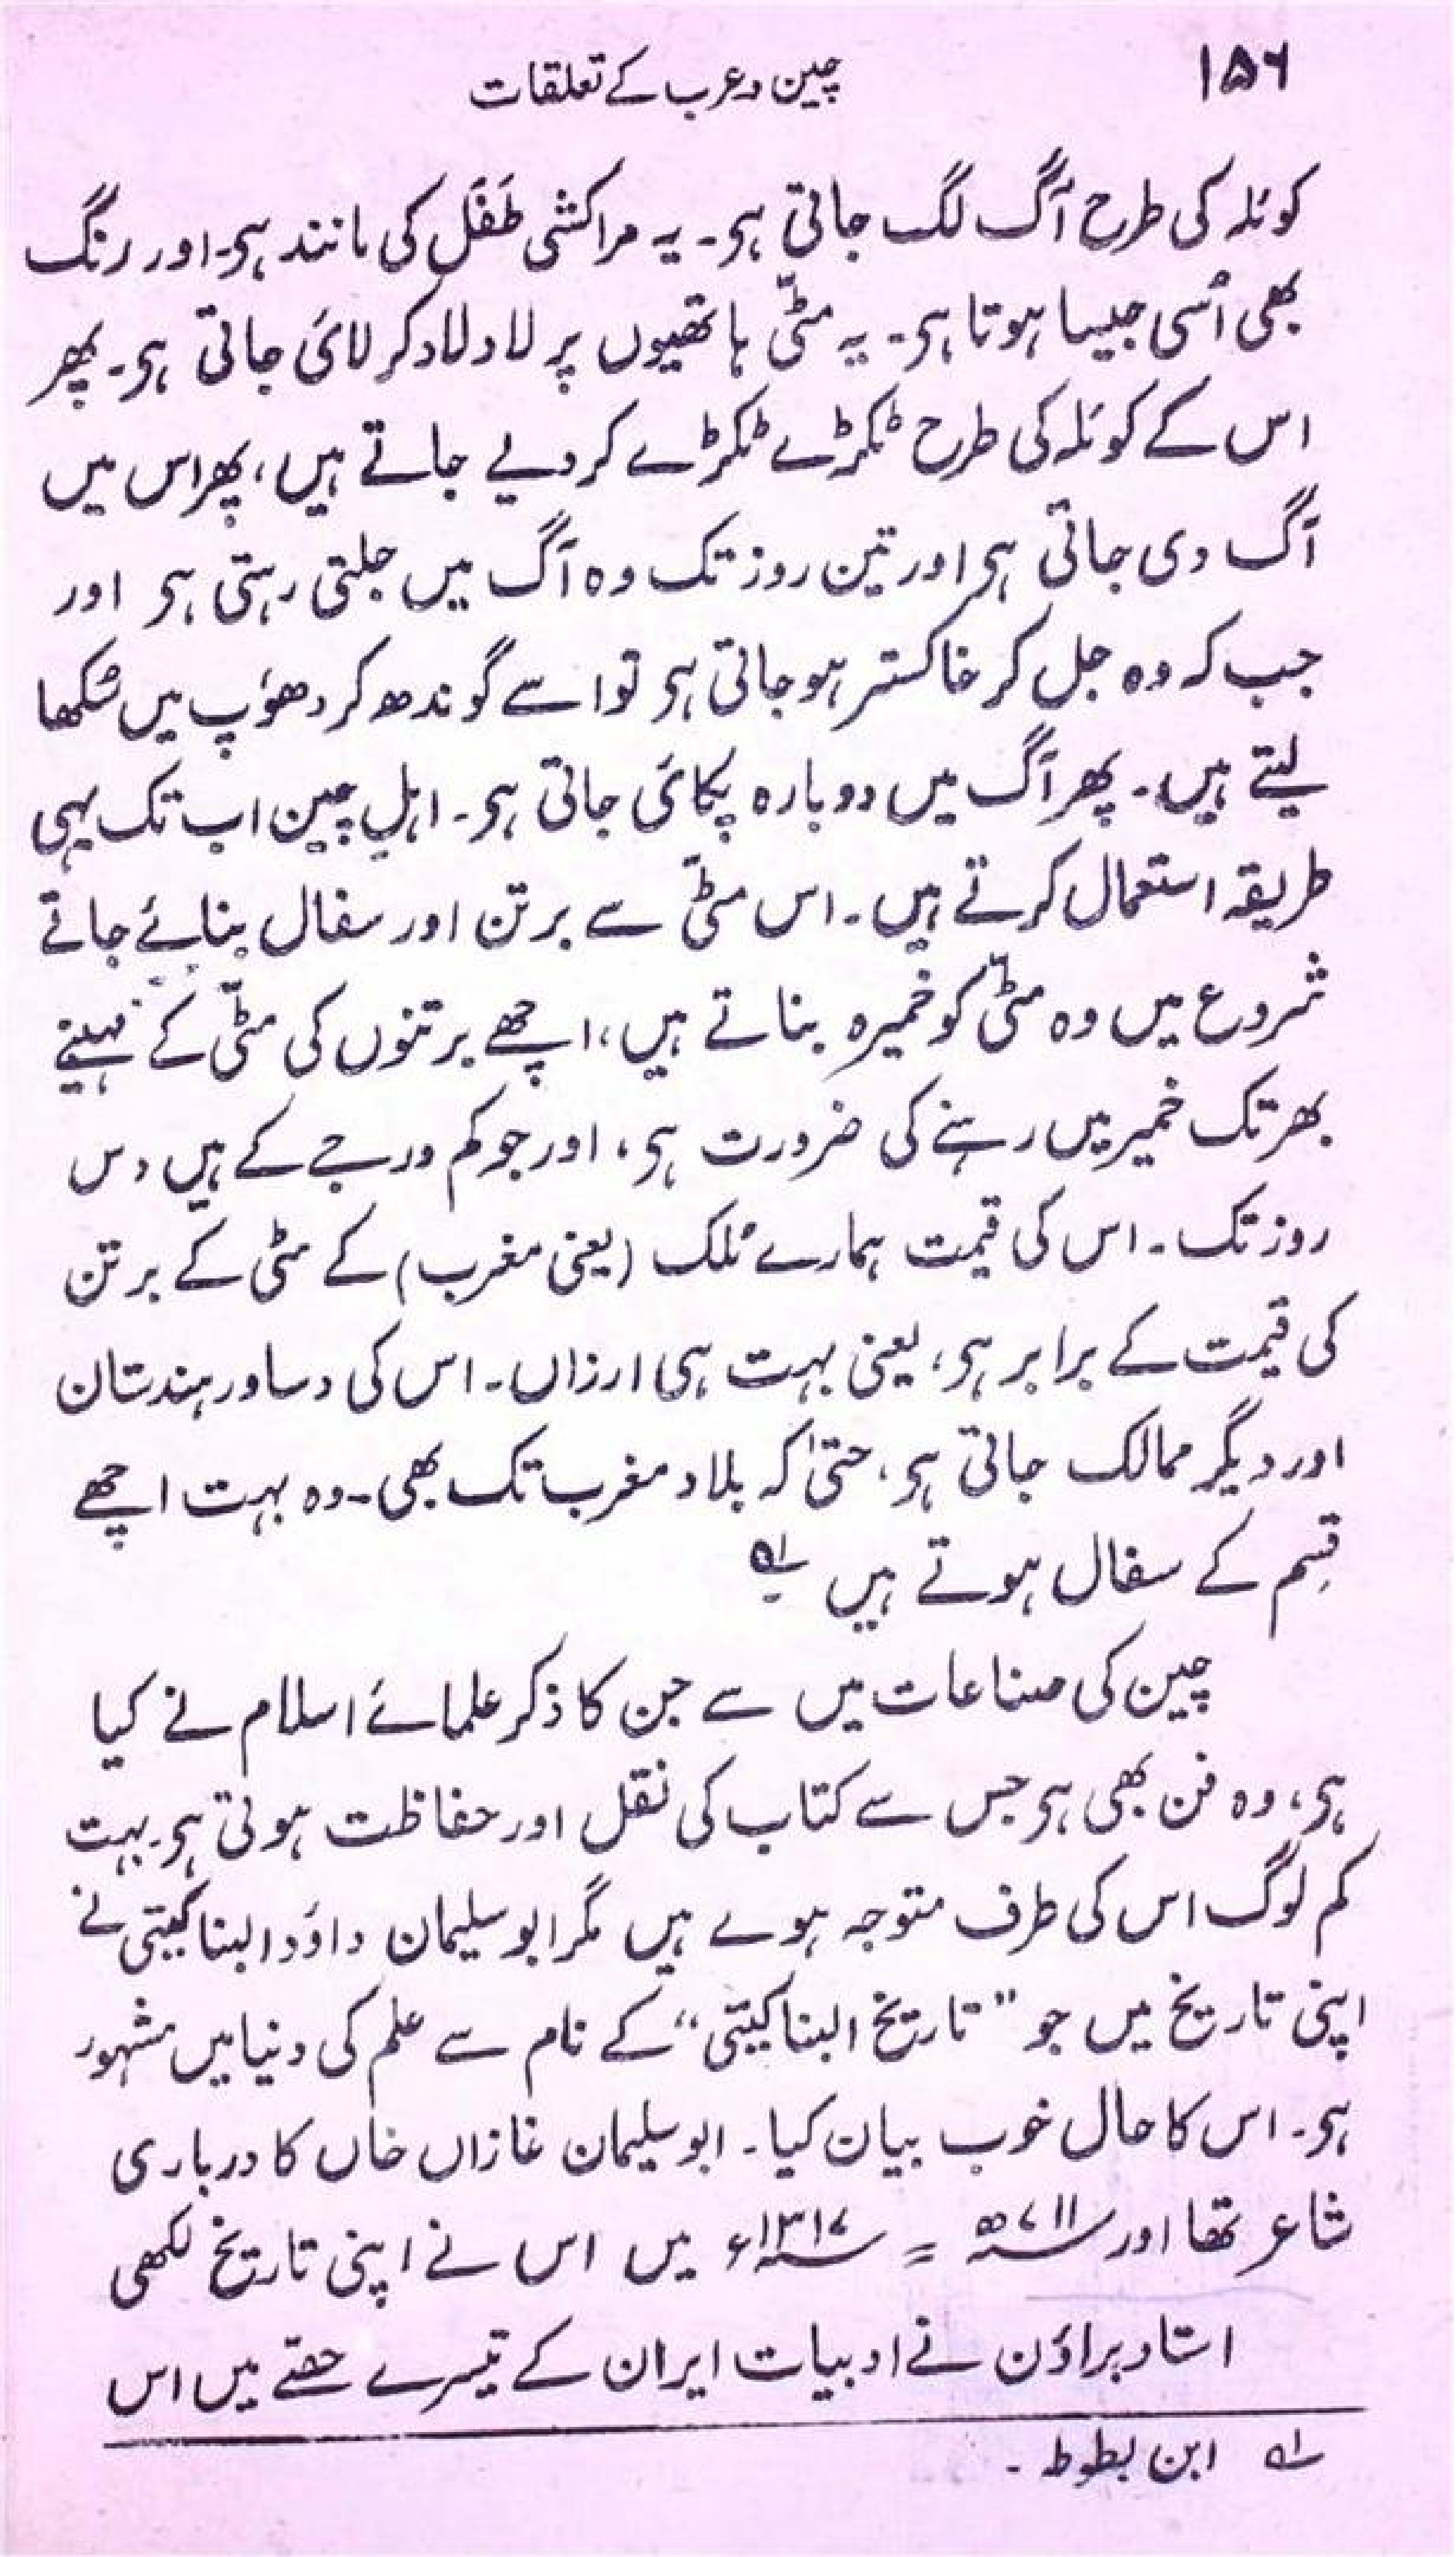 ۱۵۶
چین و عرب کے تعلقات
کوئلہ کی طرح آگ لگ جاتی ہو۔ یہ مراکشی طَفَل کی مانند ہو۔ اور رنگ
بھی اُسی جیسا ہوتا ہو۔ یہ مٹّی ہاتھیوں پر لاد لاد کر لائی جاتی ہو۔ پھر
اس کے کوئلہ کی طرح ٹکڑے ٹکڑے کر دیے جاتے ہیں، پھر اس میں
آگ دی جاتی ہو اور تین روز تک وہ آگ میں جلتی رہتی ہو اور
جب کہ وہ جل کر خاکستر ہو جاتی ہو تو اسے گوندھ کر دھوٗپ میں سُکھا
لیتے ہیں۔ پھر آگ میں دوبارہ پکائی جاتی ہو۔ اہلِ چین اب تک یہی
طریقہ استعمال کرتے ہیں۔ اس مٹّی سے برتن اور سفال بنائے جاتے
شروع میں وہ مٹّی کو خمیرہ بناتے ہیں، اچھے برتنوں کی مٹّی کے مہینے
بھر تک خمیر میں رہنے کی ضرورت ہو، اور جو کم درجے کے ہیں دس
روز تک۔ اس کی قیمت ہمارے مُلک (یعنی مغرب) کے مٹی کے برتن
کی قیمت کے برابر ہو، یعنی بہت ہی ارزاں۔ اس کی دساور ہندستان
اور دیگر ممالک جاتی ہو، حتیٰ کہ بلاد مغرب تک بھی۔ وہ بہت اچھے
قسِم کے سفال ہوتے ہیں ؎۱
چین کی صناعات میں سے جن کا ذکر علمائے اسلام نے کیا
ہو، وہ فن بھی ہو جس سے کتاب کی نقل اور حفاظت ہوتی ہو۔ بہت
کم لوگ اس کی طرف متوجہ ہوے ہیں مگر ابو سلیمان داؤد البناکیتی نے
اپنی تاریخ میں جو "تاریخ البناکیتی" کے نام سے علم کی دنیا میں مشہور
ہو۔ اس کا حال خوب بیان کیا۔ ابو سلیمان غازاں خاں کا درباری
شاعر تھا اور سنہ ۷۱۱ھ = سنہ ۱۳۱۷ء میں اس نے اپنی تاریخ لکھی
استاد براؤن نے ادبیات ایران کے تیسرے حصّے میں اس
؎۱ ابن بطوطہ۔